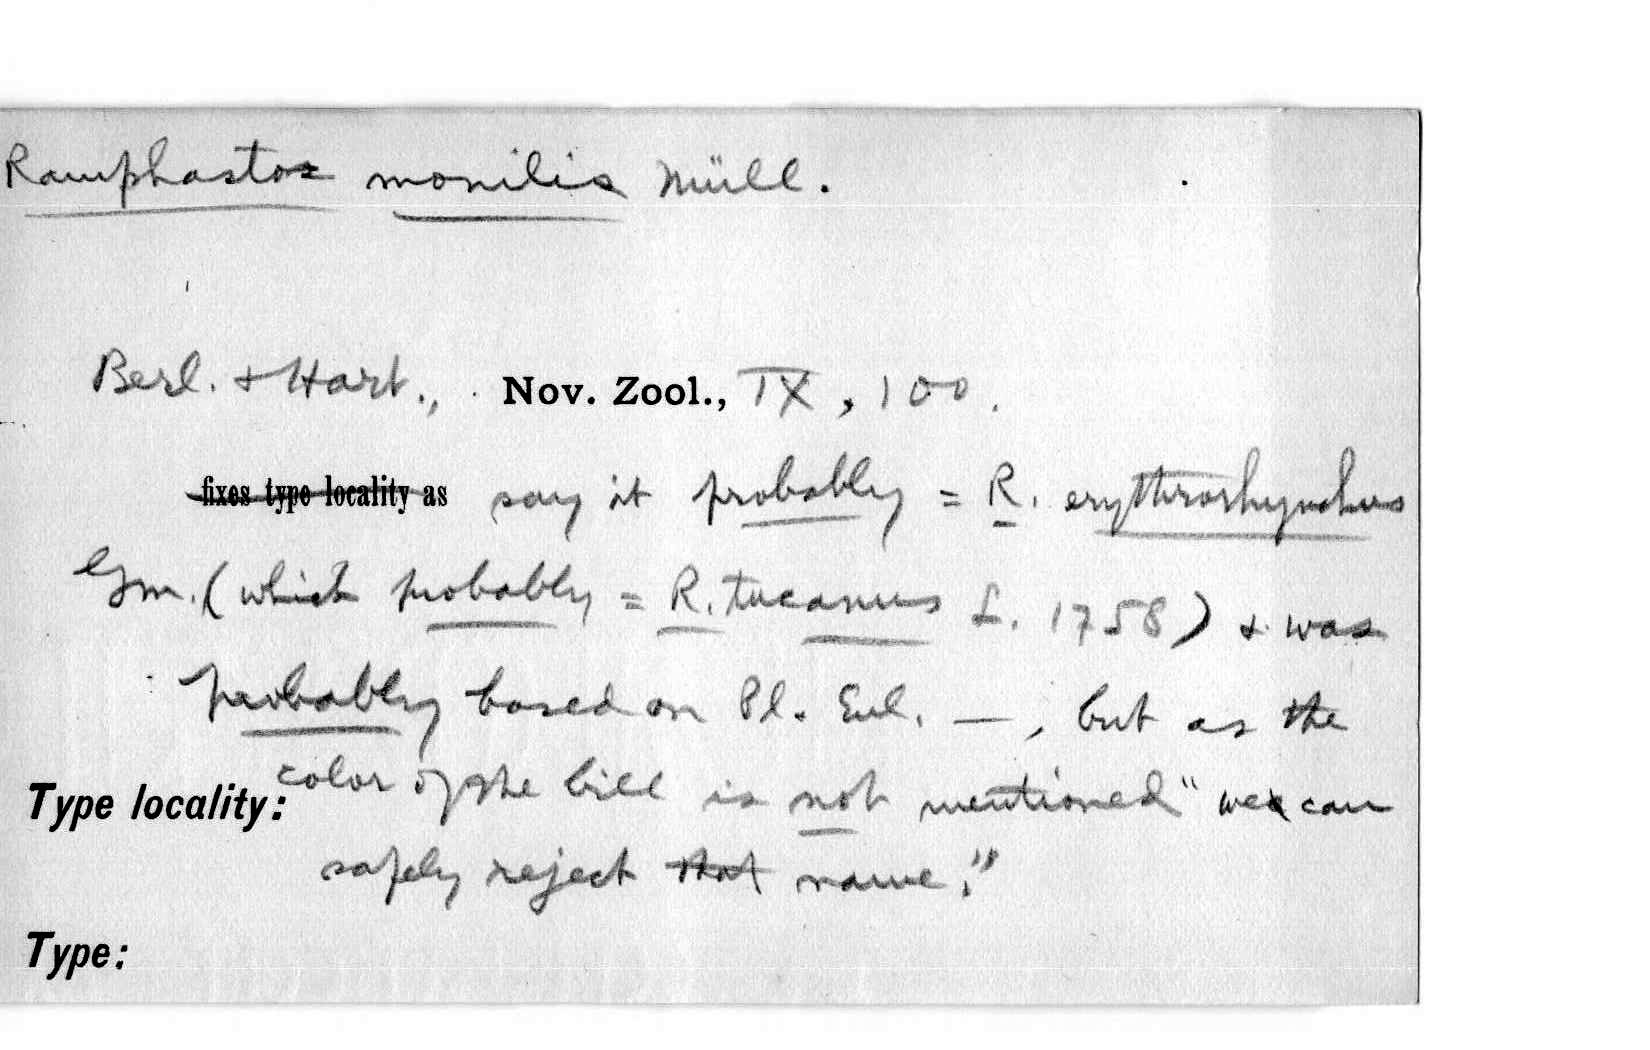 Ramphastos monilis Müll.
Berl. & Hart., Nov. Zool., IX, 100.
fixes type locality as say it probably = R. erythrorhynchus
Gm. (which probably = R. tucanus L. 1758) & was
probably based on Pl. Enl. —, but as the
color of the bill is not mentioned "we can
Type locality:
safely reject that name."
Type: